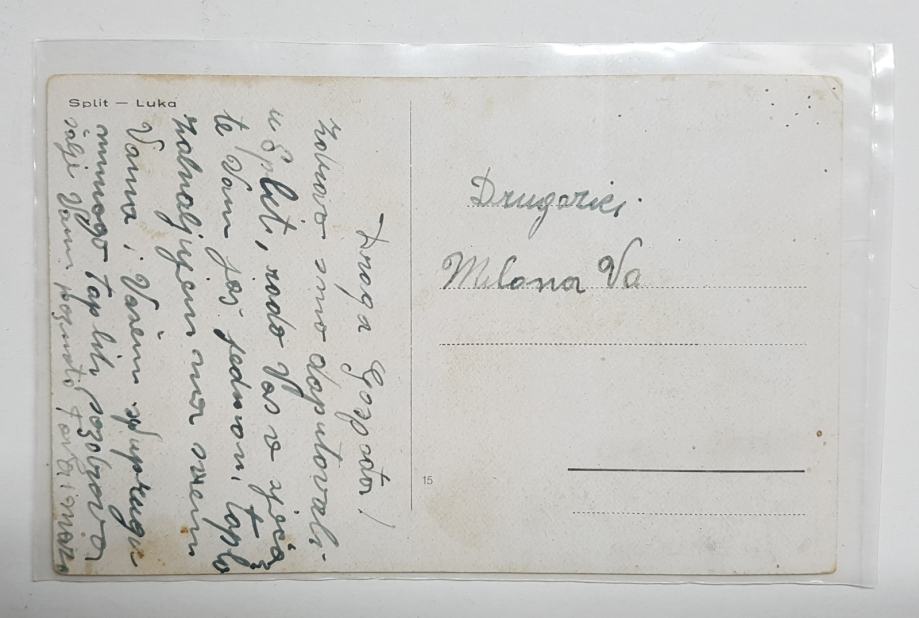 Split — Luka
Draga Gospođo!
smo doputovali
u Split, rado Vas se sjeća
te Vam još jednom toplo
zahvaljujem na svemu
Vama i Vašem suprugu
mnogo toplih pozdrava
šalje Vam
Drugarici
Milona Va
15